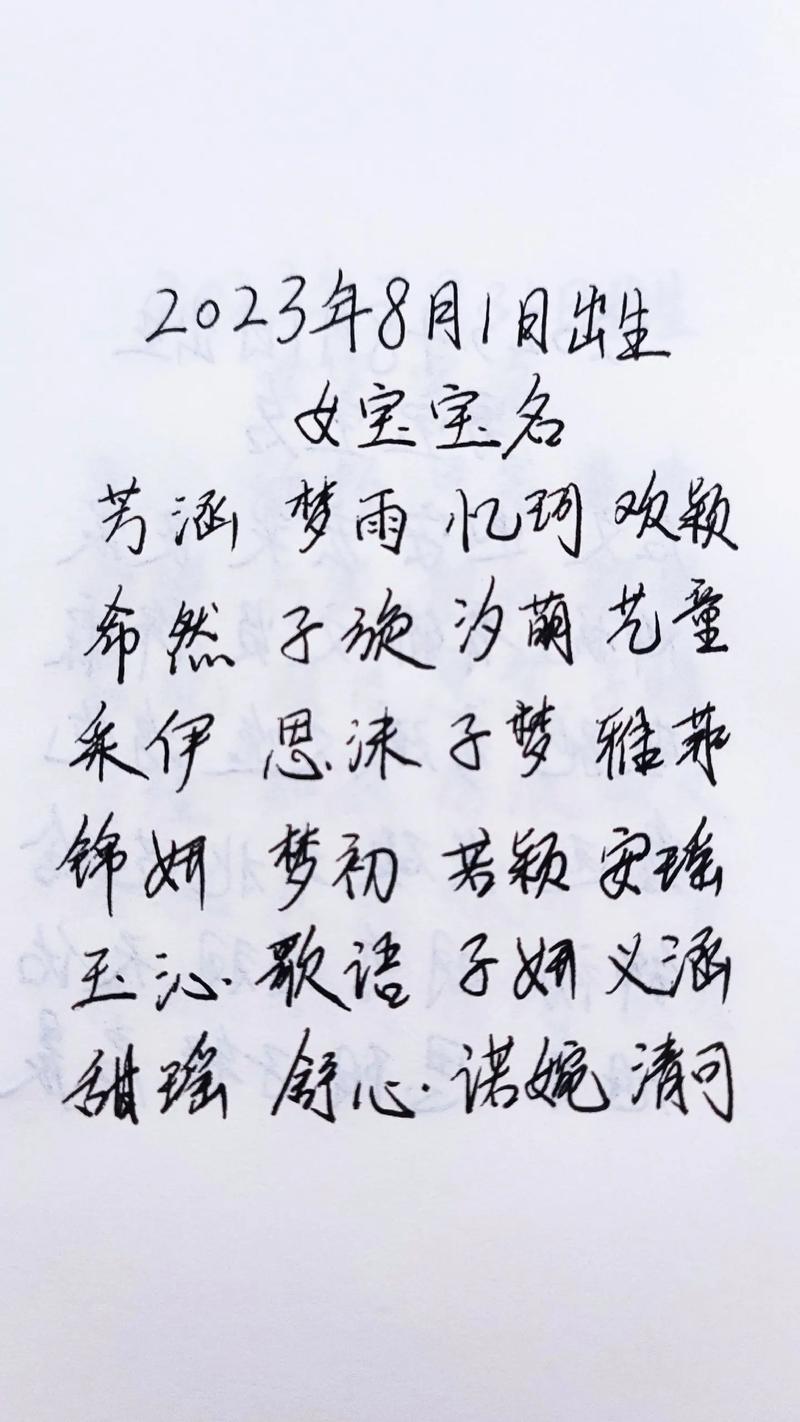 2023年8月1日出生
女宝宝名
芳涵 梦雨 忆珂 欢颖
希然 子旋 汐萌 艺童
采伊 思沫 子梦 雅菲
锦妍 梦初 若颖 安瑶
玉沁 歌语 子妍 义涵
甜瑶 舒心 诺婉 清可